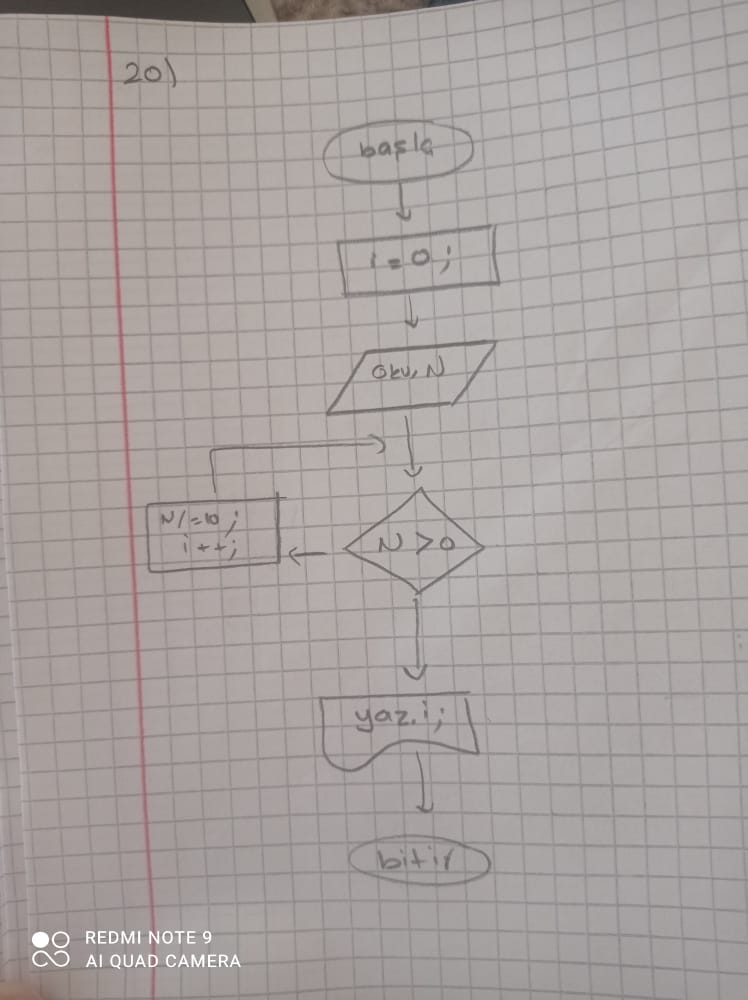 20)
başla
i = 0 ;
oku, N
N /= 10 ;
i ++ ;
N > 0
yaz, i ;
bitir
REDMI NOTE 9
AI QUAD CAMERA